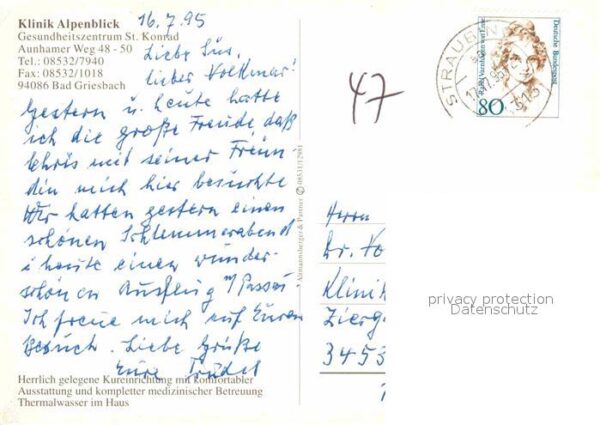 Klinik Alpenblick
Gesundheitszentrum St. Konrad
Aunhamer Weg 48 - 50
Tel.: 08532/7940
Fax: 08532/1018
94086 Bad Griesbach
16.7.95
Liebe Sus,
lieber Volkmar!
Gestern u. heute hatte
ich die große Freude daß
Chris mit seiner Freun
din mich hier besuchte
Wir hatten gestern einen
schönen Schlemmerabend
u heute einen wunder-
schönen Ausflug n/Passau.
Ich freue mich auf Euren
Besuch. Liebe Grüße
Eure Trudel
Herrlich gelegene Kureinrichtung mit komfortabler
Ausstattung und kompletter medizinischer Betreuung
Thermalwasser im Haus
Altmannsberger & Partner © 08531/12981
47
STRAUBING
Deutsche Bundespost
Rahel Varnhagen von Ense
80
Herrn
Dr. Vo
Klinik
Zierg
3453
privacy protection
Datenschutz